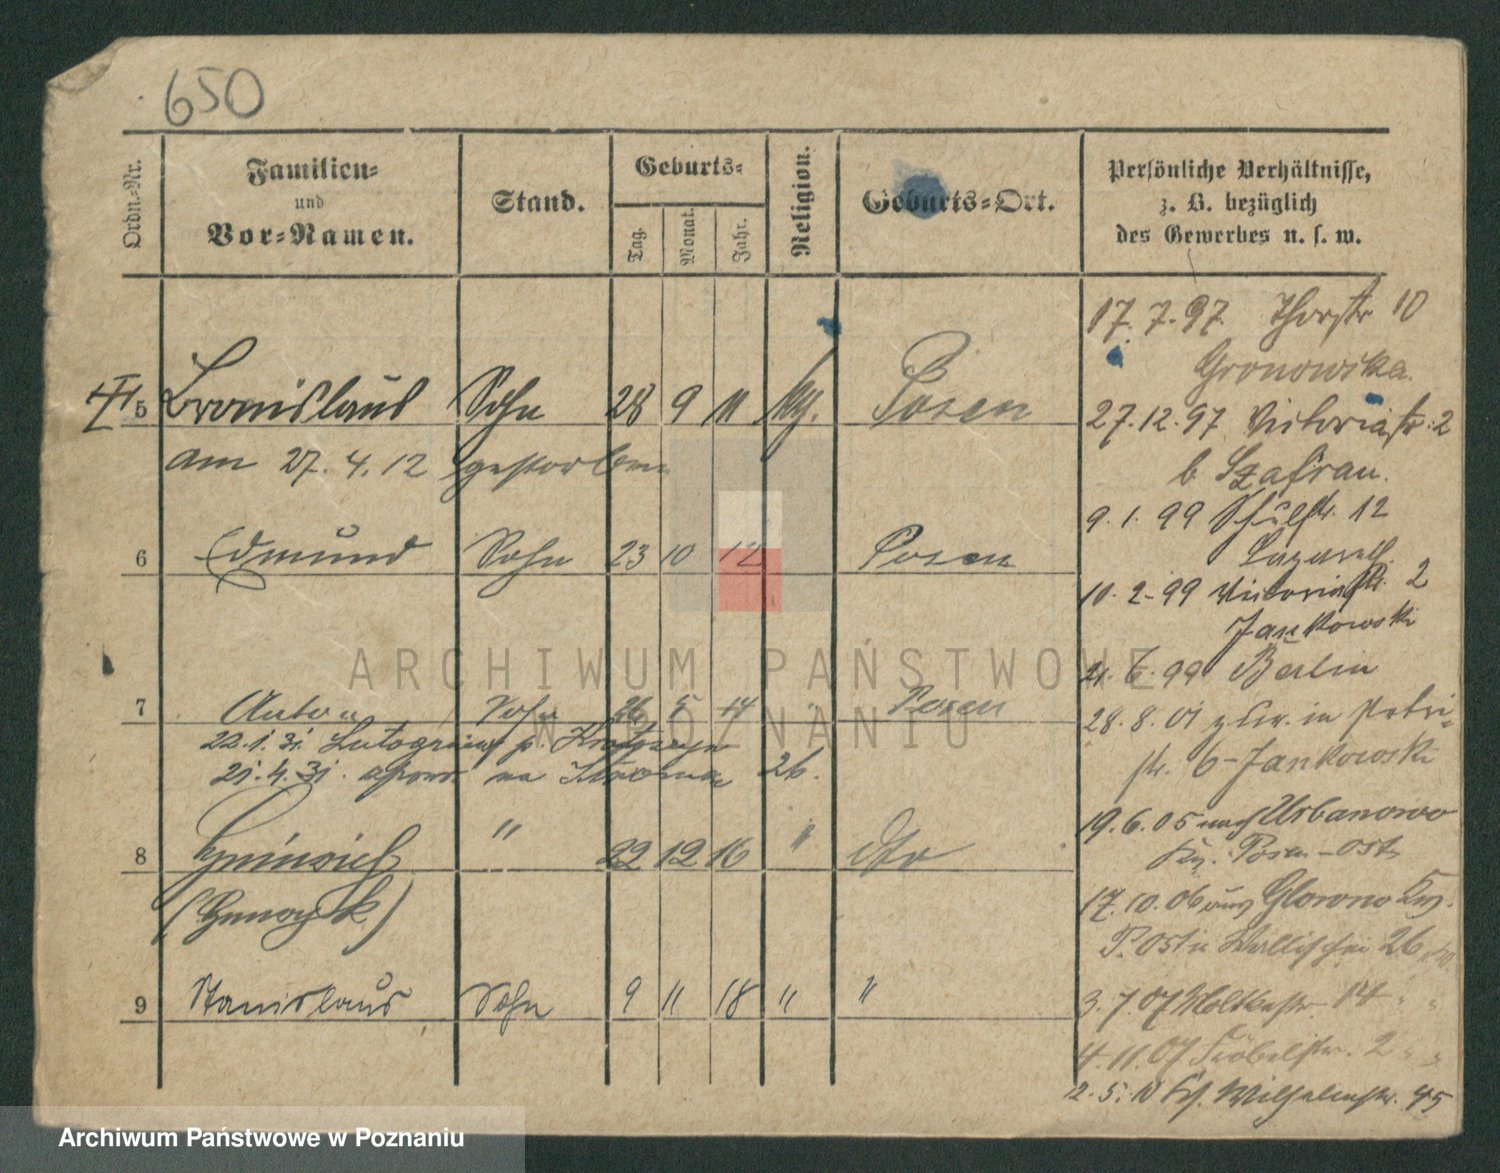 650
Ordn.-Nr. Familien- und Vor-Namen. Stand. Geburts- Tag. Monat. Jahr. Religion. Geburts-Ort. Persönliche Verhältnisse, z. B. bezüglich des Gewerbes u. s. w.
5 Bronislaus Sohn 28 9 11 kth. Posen
am 27.4.12 gestorben
6 Edmund Sohn 23 10 12 Posen
7 Anton Sohn 26 5 14 " Posen
22.1.31. Lutogniew p. Krotoszyn
21.4.31. na 26.
8 Heinrich " 22 12 16 " dto
(Henryk)
9 Stanislaus Sohn 9 11 18 " "
17.7.97 Thorstr 10
Gronowska.
27.12.97 Victoriastr. 2
b Szafran.
9.1.99 Schulstr. 12
10.2.99 Victoriastr. 2
Jankowski
21.6.99 Berlin
28.8.01 zur. in Petri-
str. 6 - Jankowski
19.6.05 nach Urbanowo
Krs. Posen-Ost
17.10.06 aus Glowno Krs.
P. Ost n Wallischei 26
3.7.07 Moltkestr. 14 " "
4.11.07 Fröbelstr. 2 " "
2.5.10 Wilhelmstr. 45
ARCHIWUM PAŃSTWOWE
W POZNANIU
Archiwum Państwowe w Poznaniu